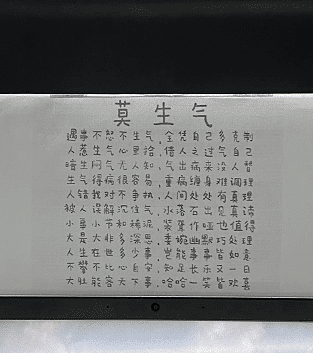 莫生气
遇事不怒不生气,全凭自己多克制
人惹生气心里拾,借人之过气自己
暗生闷气无人知,气出病来没人替
生气得病很容易,重病缠身难调理
人错我对不争执,人间处处有真理
被人误解沉住气,水落石出见真谛
小事小节和稀泥,装聋作哑也值得
大是大非多深思,委婉幽默巧处理
人生在世多少事,岂能事事皆如意
不攀不比心自安,知足长乐又一日
大肚能容天下事,哈哈一笑皆欢喜